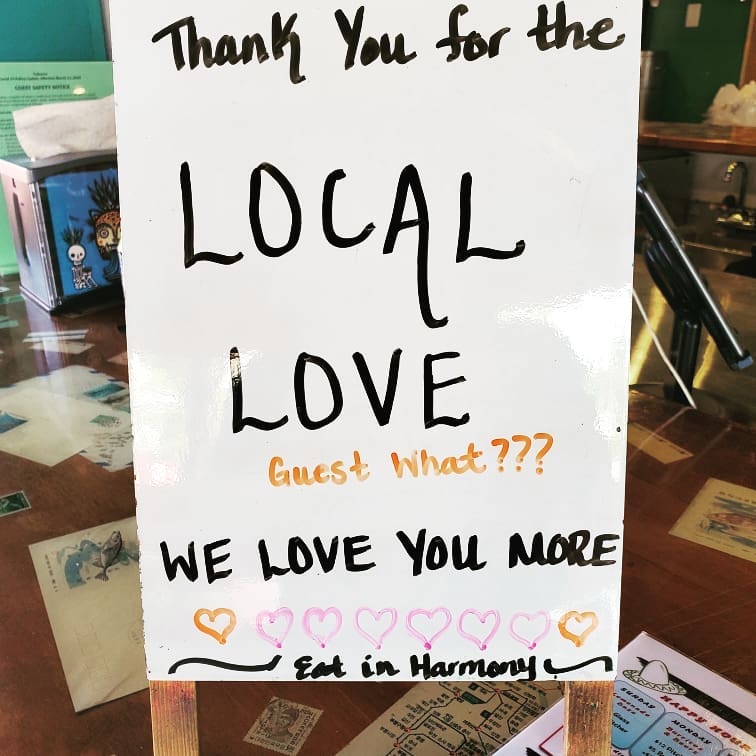 Thank You for the
LOCAL
LOVE
Guest What???
WE LOVE YOU MORE
Eat in Harmony
GUEST SAFETY NOTICE
HAPPY HO
SUNDAY
MONDAY